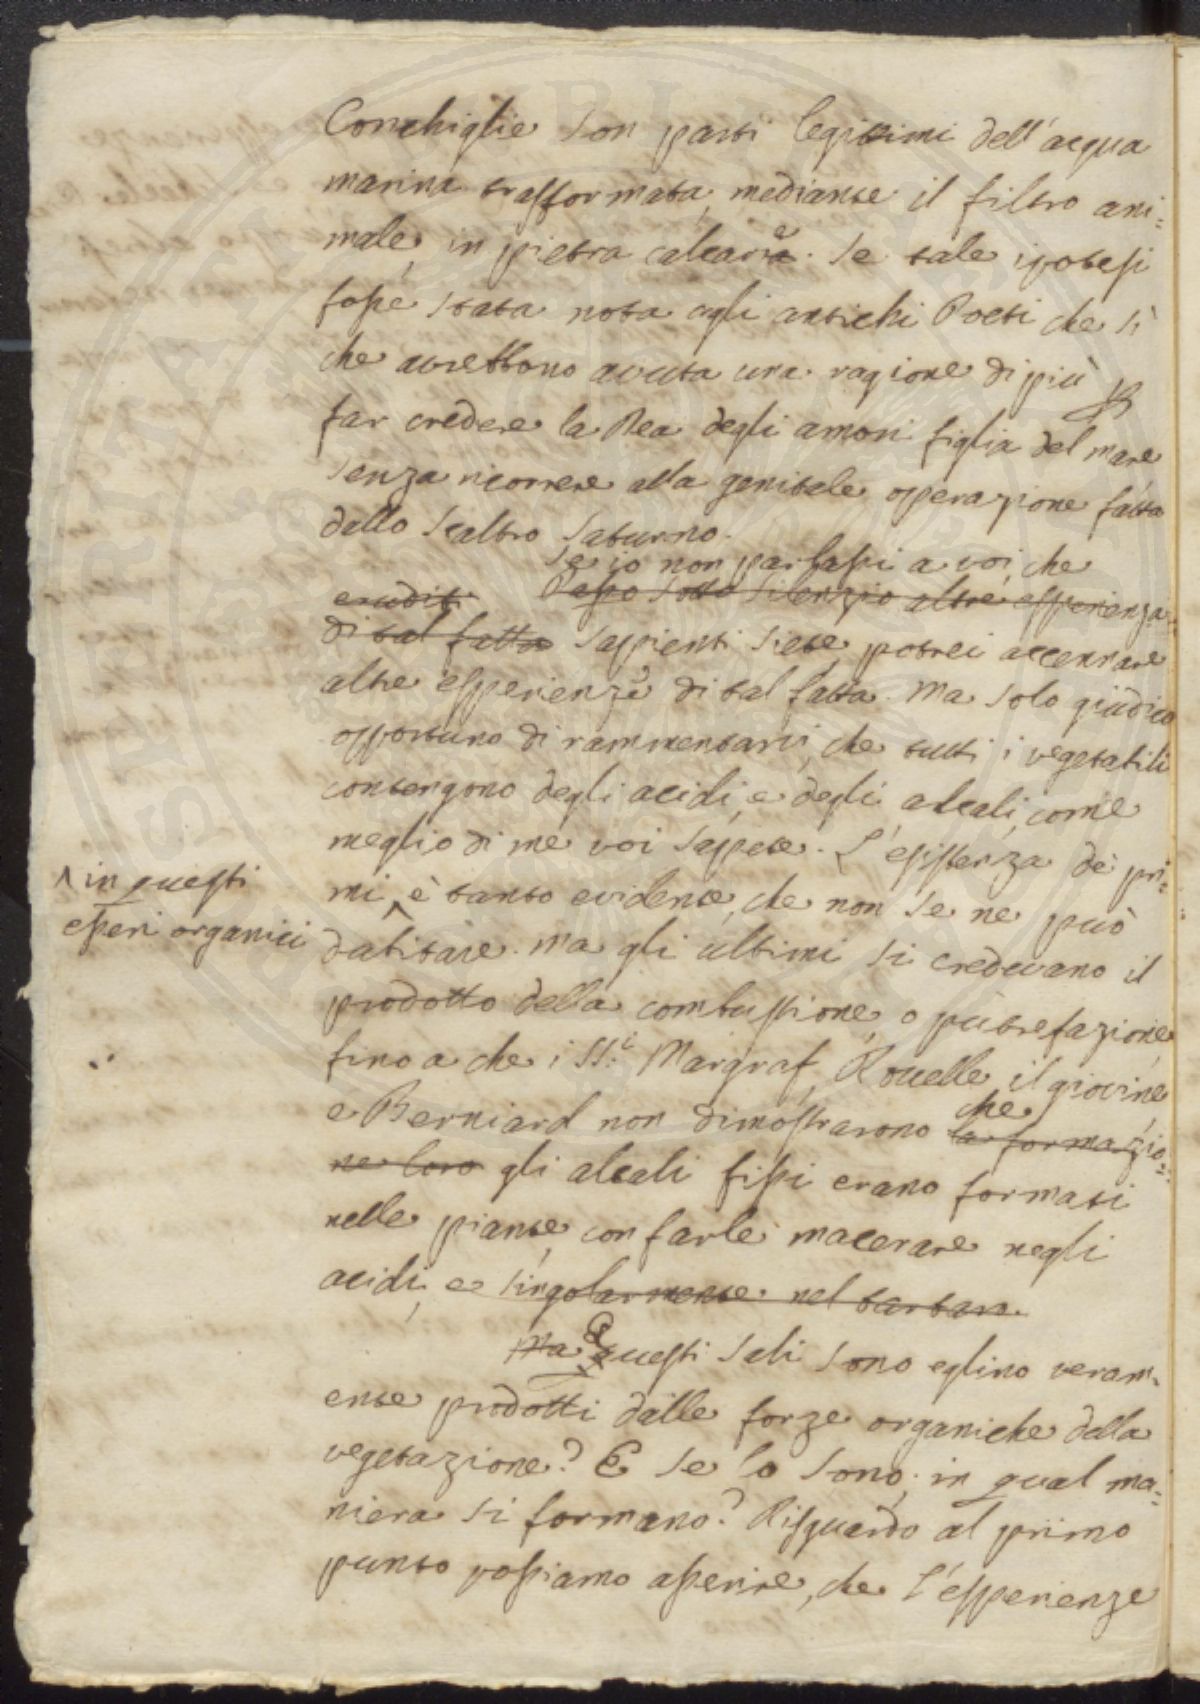 Conchiglie son parti legittimi dell'acqua
marina trasformata, mediante il filtro ani=
male, in pietra calcaria e. Se tale ipotesi
fosse stata nota agli antichi Poeti che sì
che avrebbono avuta una ragione di più
far credere la Dea degli amori figlia del mare
senza ricorrere alla genitale operazione fatta
dallo scaltro Saturno.
Se io non parlassi a voi, che
eruditi Passo sotto silenzio altre esperienze
di tal fatta sapienti siete, potrei accennare
altre esperienze di tal fatta. Ma solo giudico
opportuno di rammentarvi, che tutti i vegetabili
contengono degli acidi, e degli alcali, come
meglio di me voi sapete. L'esistenza de' pri=
^ in questi
esseri organici
mi ^ è tanto evidente, che non se ne può
dubitare. Ma gli ultimi si credevano il
prodotto della combustione, o putrefazione
fino a che i SS.i Margraf, Rouelle il giovine,
e Berniard non dimostrarono che la formazio=
ne loro gli alcali fissi erano formati
nelle piante, con farle macerare negli
acidi, e singolarmente nel tartaro.
Ma Questi sali sono eglino veram=
ente prodotti dalle forze organiche della
vegetazione? E se lo sono, in qual ma=
niera si formano? Risguardo al primo
punto possiamo asserire, che l'esperienze